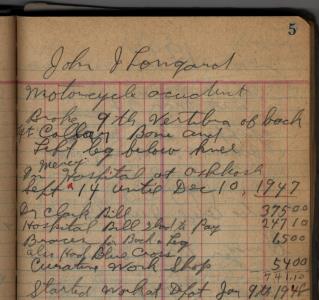 5
John J Longard
Motorcycle accident
Broke 9th Vertibra of back
Collar Bone and
Left leg below knee
Mercy
In Hospital at Oshkosh
Sept 14 until Dec 10, 1947
Dr Clark Bill 375 00
Hospital Bill had to Pay 247 10
Braces for Back & Leg 65 00
also Had Blue Cross
Curative Work Shop 54 00
741.10
Started Work at Dfot Jan 9th 1948